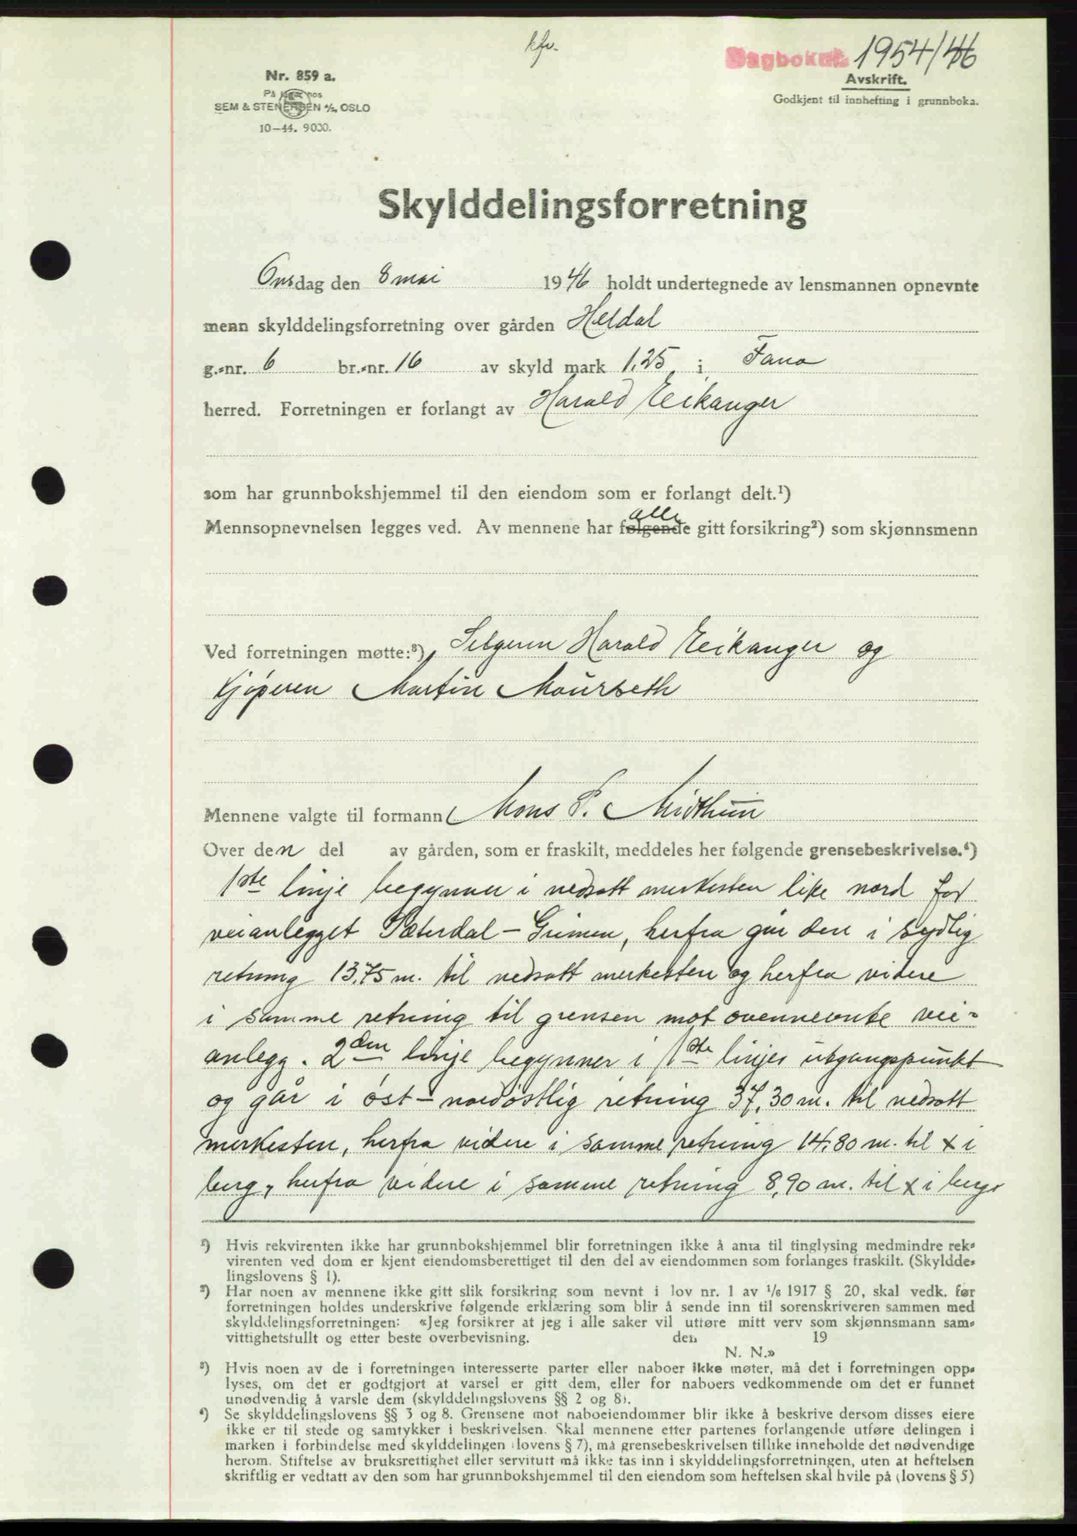 kfr.
Dagboknr. 1954/46
Avskrift.
Godkjent til innhefting i grunnboka.
Nr. 859 a.
På lager hos
SEM & STENERSEN A/S, OSLO
10-44. 9000.
Skylddelingsforretning
Onsdag den 8 mai 1946 holdt undertegnede av lensmannen opnevnte
menn skylddelingsforretning over gården Heldal
g.-nr. 6 br.-nr. 16 av skyld mark 1,25 i Fana
herred. Forretningen er forlangt av Harald Eikanger
som har grunnbokshjemmel til den eiendom som er forlangt delt.¹)
Mennsopnevnelsen legges ved. Av mennene har følgende alle gitt forsikring²) som skjønnsmenn
Ved forretningen møtte:³) Selgeren Harald Eikanger og
kjøperen Martin Maurseth
Mennene valgte til formann Mons P. Midthun
Over den del av gården, som er fraskilt, meddeles her følgende grensebeskrivelse.⁴)
1ste linje begynner i nedsatt merkesten like nord for
veianlegget Sæterdal - Grimen, herfra går den i sydlig
retning 13,75 m. til nedsatt merkesten og herfra videre
i samme retning til grensen mot ovennevnte vei-
anlegg. 2den linje begynner i 1ste linjes utgangspunkt
og går i øst - nordøstlig retning 37,30 m. til nedsatt
merkesten, herfra videre i samme retning 14,80 m. til x i
berg, herfra videre i samme retning 8,90 m. til x i berg,
¹) Hvis rekvirenten ikke har grunnbokshjemmel blir forretningen ikke å anta til tinglysing medmindre rek-
virenten ved dom er kjent eiendomsberettiget til den del av eiendommen som forlanges fraskilt. (Skyldde-
lingslovens § 1).
²) Har noen av mennene ikke gitt slik forsikring som nevnt i lov nr. 1 av 1/6 1917 § 20, skal vedk. før
forretningen holdes underskrive følgende erklæring som blir å sende inn til sorenskriveren sammen med
skylddelingsforretningen: «Jeg forsikrer at jeg i alle saker vil utføre mitt verv som skjønnsmann sam-
vittighetsfullt og etter beste overbevisning. den 19
N. N.»
³) Hvis noen av de i forretningen interesserte parter eller naboer ikke møter, må det i forretningen opp-
lyses, om det er godtgjort at varsel er gitt dem, eller for naboers vedkommende om det er funnet
unødvendig å varsle dem (skylddelingslovens §§ 2 og 8).
⁴) Se skylddelingslovens §§ 3 og 8. Grensene mot naboeiendommer blir ikke å beskrive dersom disses eiere
ikke er til stede og samtykker i beskrivelsen. Skal mennene etter partenes forlangende utføre delingen i
marken i forbindelse med skylddelingen (lovens § 7), må grensebeskrivelsen tillike inneholde det nødvendige
herom. Stiftelse av bruksrettighet eller servitutt må ikke tas inn i skylddelingsforretningen, uten at heftelsen
skriftlig er vedtatt av den som har grunnbokshjemmel til den eiendom som heftelsen skal hvile på (lovens § 5)